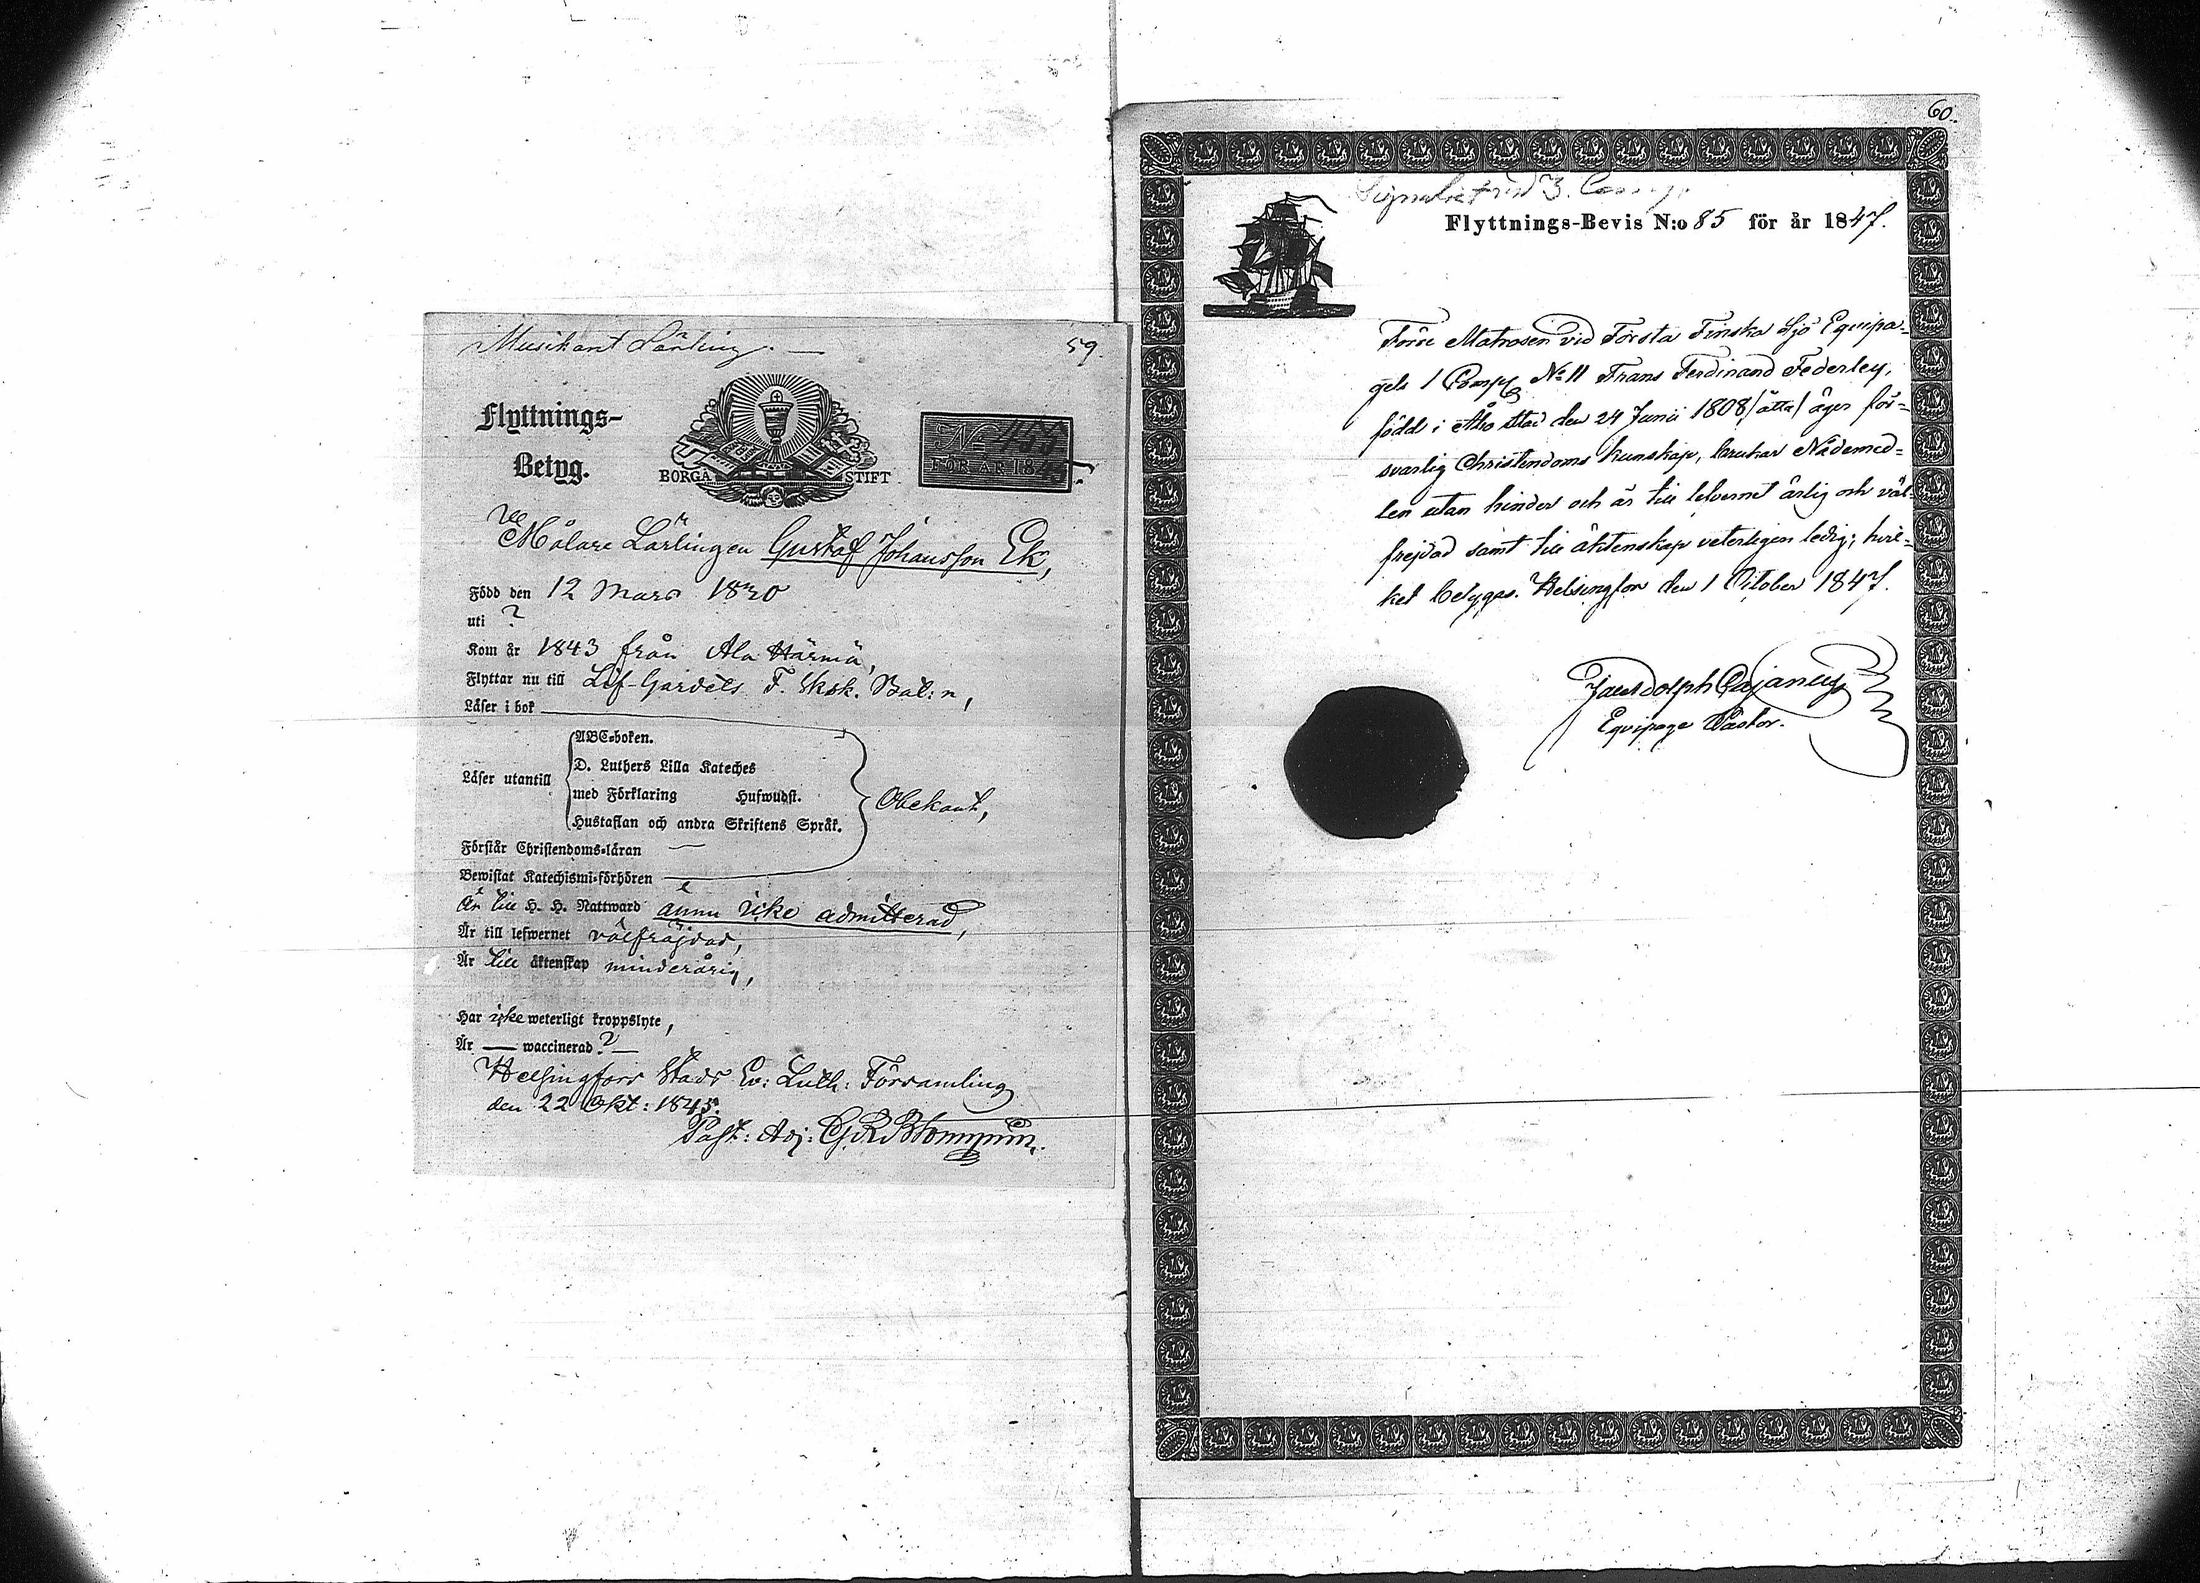 Musikant Lärling.
59.
Flyttnings-
Betyg.
BORGÅ STIFT
No 455
FÖR ÅR 1845.
Målare Lärlingen Gustaf Johansson Ek,
Född den 12 Mars 1830
uti ?
Kom år 1843 från Ala Härmä,
Flyttar nu till Lif-Gardets F. Sksk. Bat:n,
Läser i bok
ABC-boken.
D. Luthers Lilla Kateches
Läser utantill
med Förklaring Hufwudst.
Hustaflan och andra Skriftens Språk.
Obekant,
Förstår Christendoms-läran
Bewistat Katechismi-förhören
Är till H. H. Nattward ännu icke admitterad,
Är till lefwernet välfräjdad,
Är till äktenskap minderårig,
Har icke weterligt kroppslyte,
Är — waccinerad ? —
Helsingfors Stads Ev: Luth: Församling
den 22 Okt: 1845.
Past: Adj:
60.
Flyttnings-Bevis N:o 85 för år 1847.
Förre Matrosen vid Första Finska Sjö Equipa-
gets 1 Comp No 11 Frans Ferdinand Federley,
född i Åbo stad den 24 Junii 1808 /åtta/ äger för-
svarlig Christendoms kunskap, brukar Nådemed-
len utan hinder och är till lefvernet ärlig och väl-
frejdad samt till äktenskap veterligen ledig; hvil-
ket betygas. Helsingfors den 1 October 1847.
Equipage Pastor.